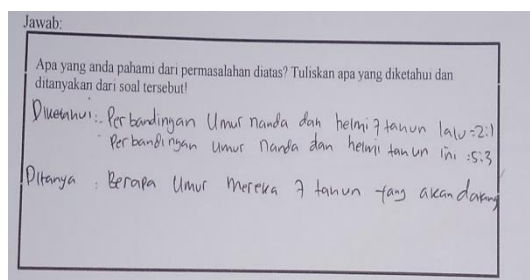 Jawab:
Apa yang anda pahami dari permasalahan diatas? Tuliskan apa yang diketahui dan
ditanyakan dari soal tersebut!
Diketahui: Perbandingan Umur nanda dan helmi 7 tahun lalu = 2:1
Perbandingan umur nanda dan helmi tahun ini : 5:3
Ditanya : Berapa Umur mereka 7 tahun yang akan datang